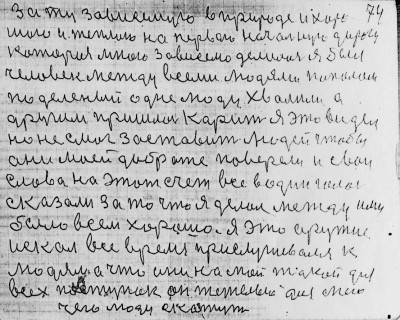 за ту зависемую в природе и хоро 74
шою и теплою на первою началную дорогу
которая много зависемо делися я был
человек между всеми людями
поделеный одне люди хвалили а
другим пришлос карит я это видел
но не смог заставит людей чтобы
они моей доброте поверели и свои
слова на этот счет все водин голос
сказали за то что я делал между ими
было всем хорошо. я это оружие
искал все время прислушевался к
людям а что они на мой такой для
всех поступок он тежелый для мого
чего люди скажут